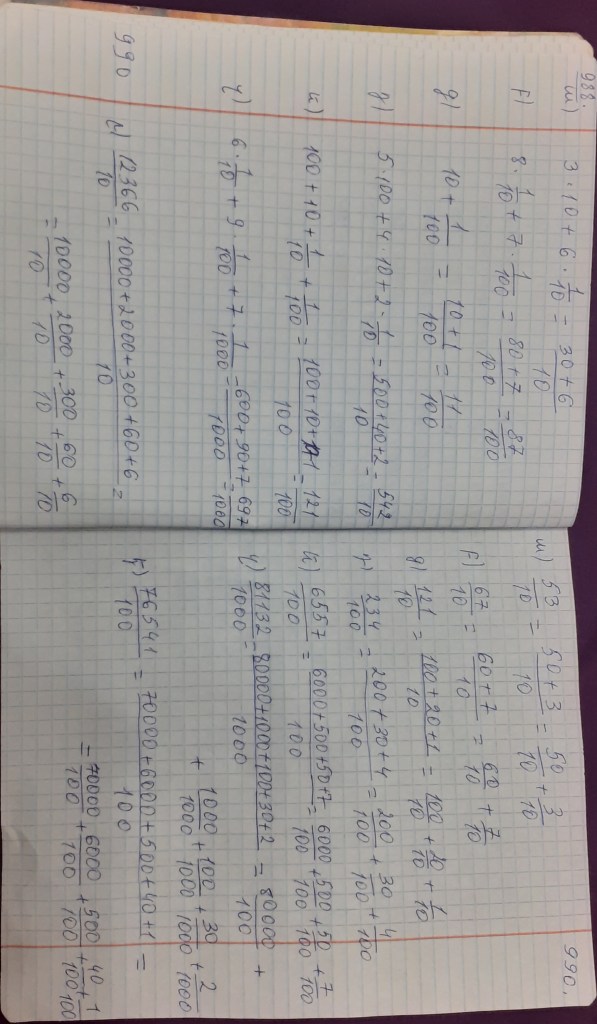 988.
ա) 3 · 10 + 6 · 1/10 = (30 + 6)/10
բ) 8 · 1/10 + 7 · 1/100 = (80 + 7)/100 = 87/100
գ) 10 + 1/100 = (10 + 1)/100 = 11/100
դ) 5 · 100 + 4 · 10 + 2 · 1/10 = (500 + 40 + 2)/10 = 542/10
ե) 100 + 10 + 1/10 + 1/100 = (100 + 10 + 11)/100 = 121/100
զ) 6 · 1/10 + 9 · 1/100 + 7 · 1/1000 = (600 + 90 + 7)/1000 = 697/1000
990
ը) 12366/10 = (10000 + 2000 + 300 + 60 + 6)/10 =
= 10000/10 + 2000/10 + 300/10 + 60/10 + 6/10
990.
ա) 53/10 = (50 + 3)/10 = 50/10 + 3/10
բ) 67/10 = (60 + 7)/10 = 60/10 + 7/10
գ) 121/10 = (100 + 20 + 1)/10 = 100/10 + 20/10 + 1/10
դ) 234/100 = (200 + 30 + 4)/100 = 200/100 + 30/100 + 4/100
ե) 6557/100 = (6000 + 500 + 50 + 7)/100 = 6000/100 + 500/100 + 50/100 + 7/100
զ) 81132/1000 = (80000 + 1000 + 100 + 30 + 2)/1000 = 80000/100 +
+ 1000/1000 + 100/1000 + 30/1000 + 2/1000
է) 76541/100 = (70000 + 6000 + 500 + 40 + 1)/100 =
= 70000/100 + 6000/100 + 500/100 + 40/100 + 1/100